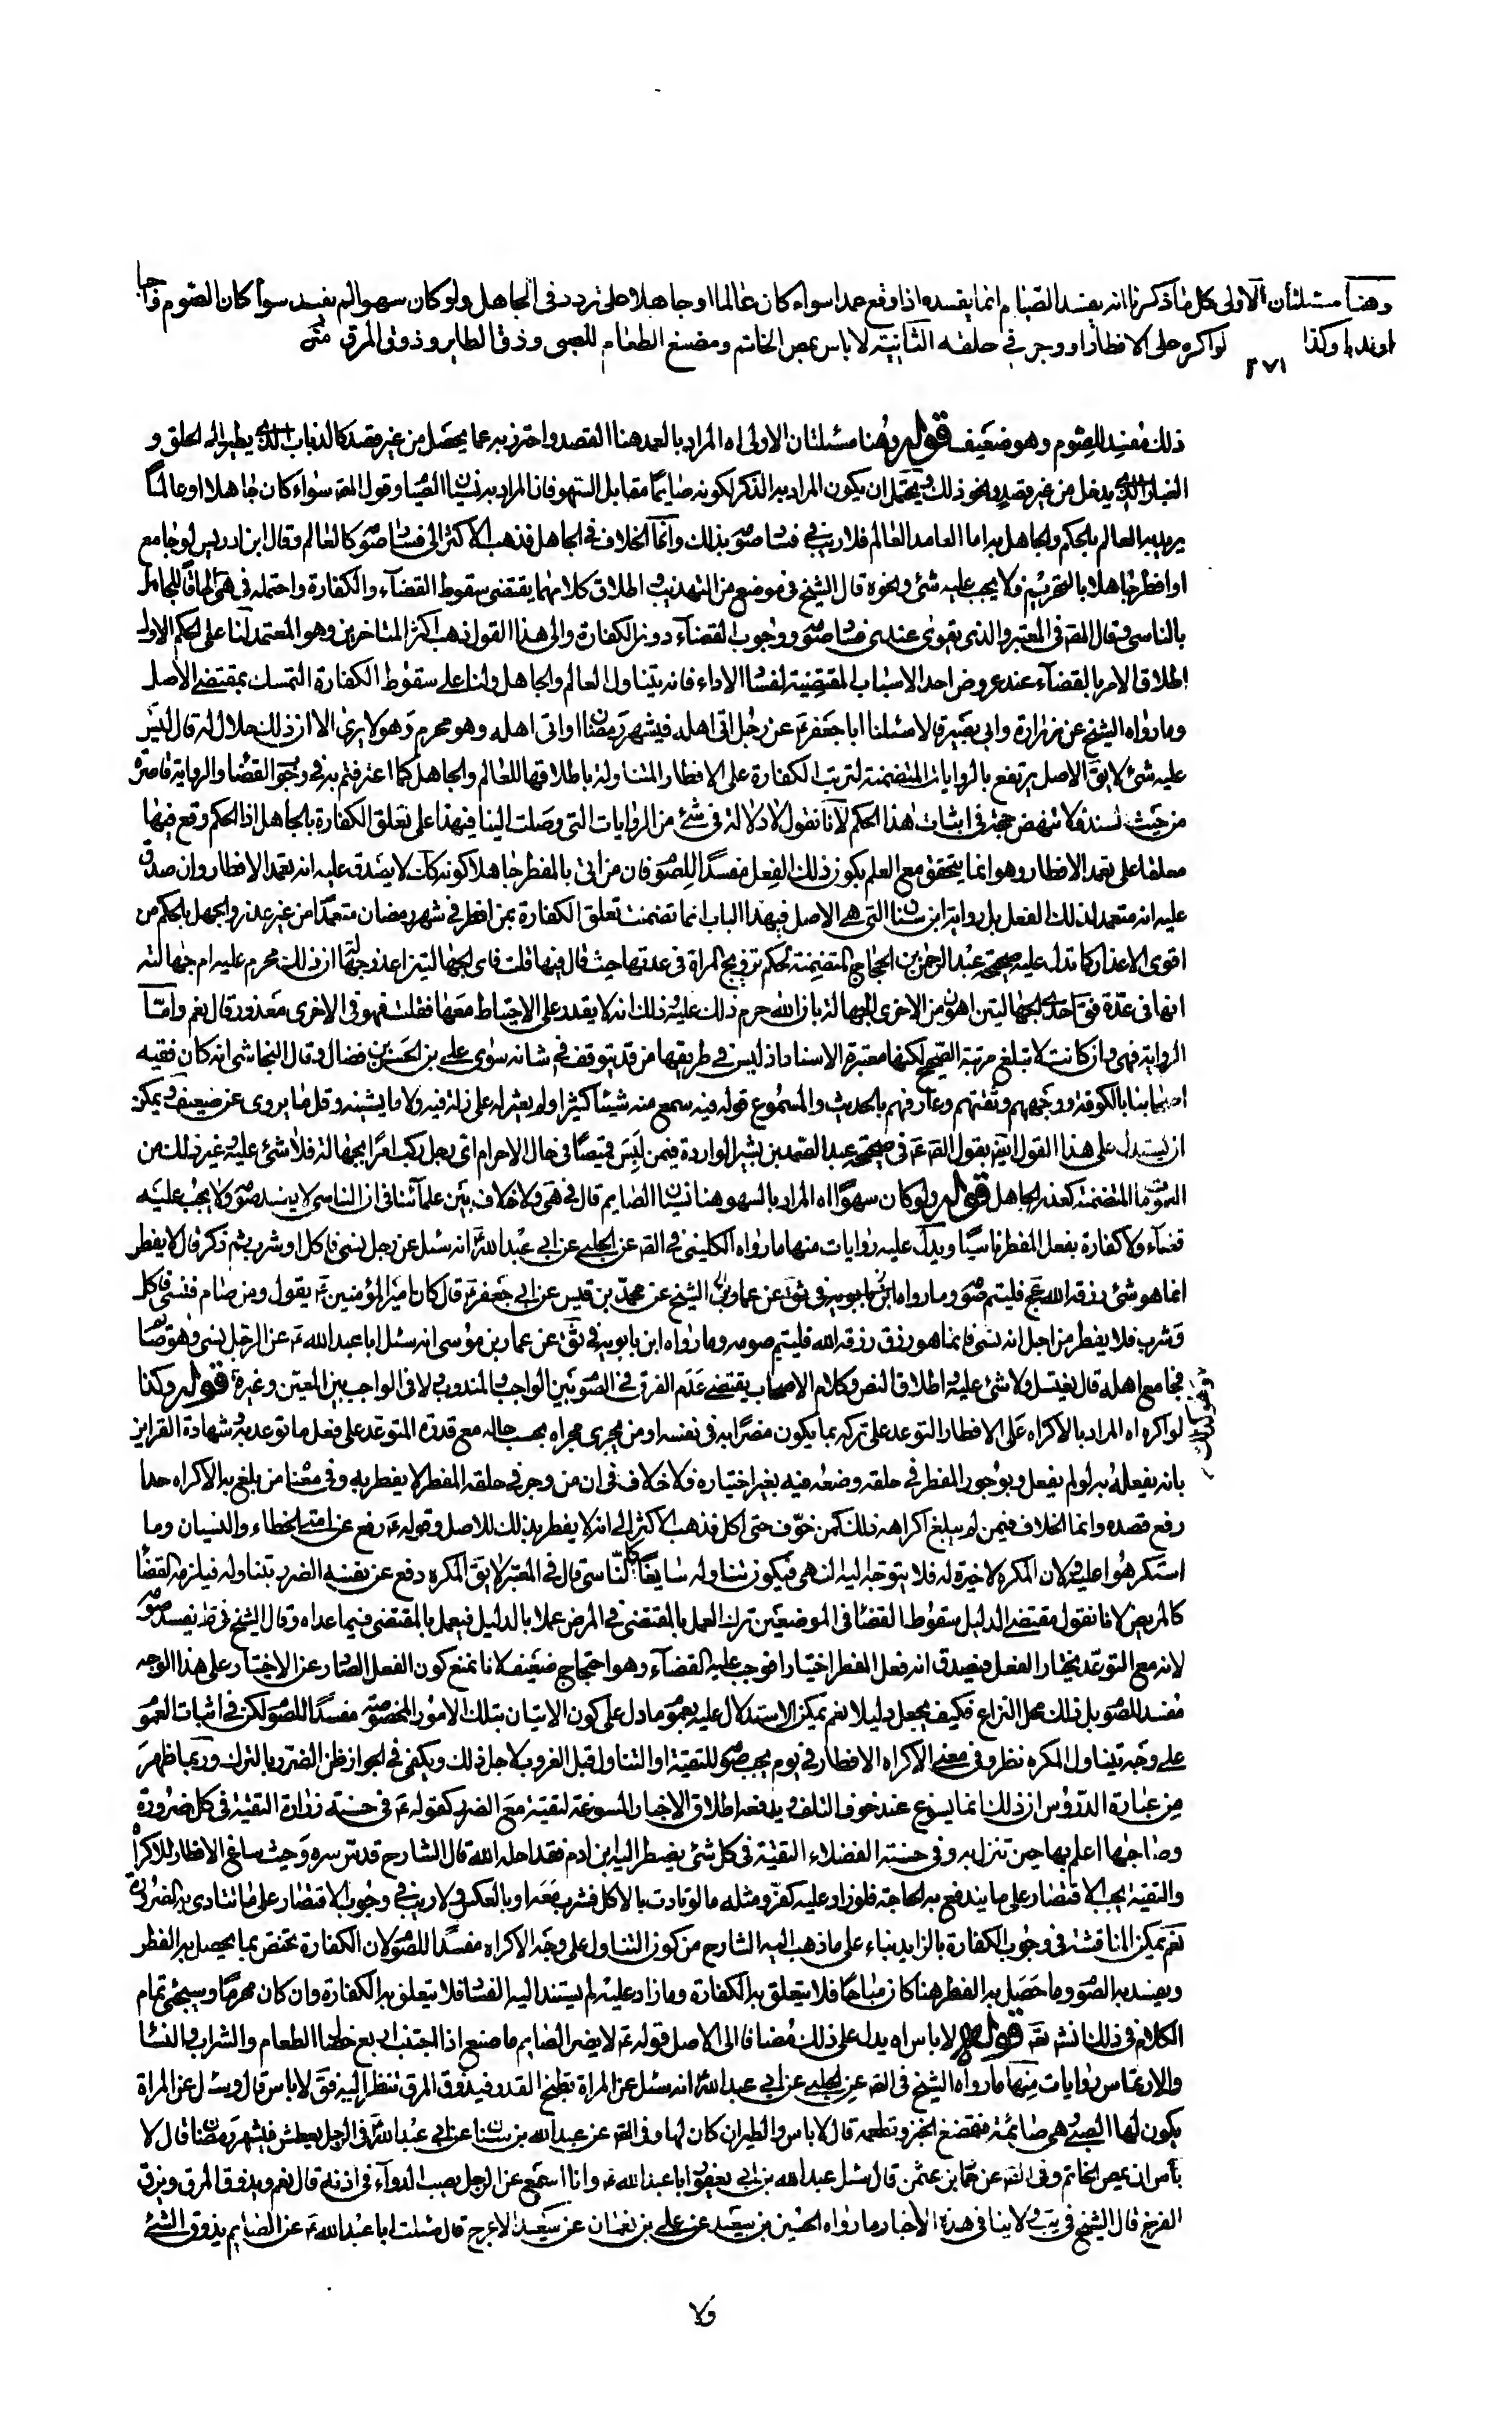 وهنا مسئلتان الاولى كل ما ذكرنا انه يفسد الصيام انما يفسده اذا وقع عمدا سواء كان عالما او جاهلا على تردد فى الجاهل ولو كان سهوا لم يفسد سواء كان الصوم واجبا
او ندبا وكذا لو اكره على الافطار او وجر في حلقه الثانية لا باس بمص الخاتم ومضغ الطعام للصبى وذق الطاير وذوق المرق متن
٢٧١
ذلك مفسد للصوم وهو ضعيف قوله وهنا مسئلتان الاولى اه المراد بالعمد هنا القصد واحترز به عما يحصل من غير قصد كالذباب الذى يطير الى الحلق و
الغبار الذى يدخل من غير قصد ونحو ذلك ويحتمل ان يكون المراد به الذكر لكونه صايما مقابل السهو فان المراد به نسيان الصيا وقول المصَ سواء كان جاهلا او عالما
يريد به العالم بالحكم والجاهل به اما العامد العالم فلا ريب في فسا صوَ بذلك وانما الخلاف في الجاهل فذهب الاكثر الى فسا صوَ كالعالم وقال ابن ادريس لو جامع
او افطر جاهلا بالتحريم فلا يجب عليه شئ ونحوه قال الشيخ في موضع من التهذيب واطلاق كلامهما يقتضى سقوط القضاء والكفارة واحتمله فى هى الحاقا للجاهل
بالناسى وقال المصَ فى المعتبر والذى يقوى عندى فسا صوَ ووجوب القضاء دون الكفارة والى هذا القول ذهب اكثر المتاخرين وهو المعتمد لنا على الحكم الاول
اطلاق الامر بالقضاء عند عروض احد الاسباب المقتضية لفسا الاداء فانه يتناول العالم والجاهل ولنا على سقوط الكفارة التمسك بمقتضى الاصل
وما رواه الشيخ عن زرارة وابي بصير قالا سئلنا ابا جعفر عَ عن رجل اتى اهله في شهر رمضان او اتى اهله وهو محرم وهو لا يرى الا ان ذلك حلال له قال ليس
عليه شئ لا يقَ الاصل يرتفع بالروايات المتضمنة لترتب الكفارة على الافطار المتناولة باطلاقها للعالم والجاهل كما اعترفتم به في وجوَ القضا والرواية قاصرة
من حيث السند فلا تنهض حجة في اثبات هذا الحكم لانا نقول لا دلالة في شئ من الروايات التي وصلت الينا في هذا على تعلق الكفارة بالجاهل اذ الحكم وقع فيها
معلقا على تعمد الافطار وهو انما يتحقق مع العلم بكون ذلك الفعل مفسدا للصوَ فان من اتى بالمفطر جاهلا كونه كَك لا يصدق عليه انه تعمد الافطار وان صدق
عليه انه متعمد لذلك الفعل بل رواية ابن سنا التى هى الاصل في هذا الباب انما تضمنت تعلق الكفارة بمن افطر في شهر رمضان متعمدا من غير عذر والجهل بالحكم من
اقوى الاعذار كما تدل عليه صحيحة عبد الرحمن بن الحجاج المتضمنة لحكم تزويج المراة في عدتها حيث قال فيها قلت فاى الجهالتين اعذر بجهالته ان ذلك محرم عليه ام جهالته
انها في عدة فقَ احدى الجهالتين اهون من الاخرى الجهالة بان الله حرم ذلك عليه وذلك انه لا يقدر على الاحتياط معها فقلت فهو فى الاخرى معذور قال نعم واما
الرواية فهى وان كانت لا تبلغ مرتبة الصحيح لكنها معتبرة الاسناد اذ ليس في طريقها من قد يتوقف في شانه سوى على بن الحسن بن فضال وقال النجاشى انه كان فقيه
اصحابنا بالكوفة ووجههم وثقتهم وعارفهم بالحديث والمسموع قوله فيه سمع منه شيئا كثيرا ولم يعثر له على زلة فيه ولا ما يشينه وقل ما يروى عن ضعيف ويمكن
ان يستدل على هذا القول ايضَ بقول الصَ عَ فى صحيحة عبد الصمد بن بشير الواردة فيمن لبس قميصا في حال الاحرام اى رجل ركب امرا بجهالة فلا شئ عليه وغير ذلك من
العموما المتضمنة لعذر الجاهل قوله ولو كان سهوا اه المراد بالسهو هنا نسيان الصايم قال في هى ولا خلاف بين علمائنا فى ان الناسى لا يفسد صوَ ولا يجب عليه
قضاء ولا كفارة بفعل المفطر ناسيا ويدل عليه روايات منها ما رواه الكلينى في الصَ عن الحلبي عن ابي عبد الله عَ انه سئل عن رجل نسى فاكل او شرب ثم ذكر قال لا يفطر
انما هو شئ رزقه الله عَج فليتم صوَ وما رواه ابن بابويه فى ثَق عن عمار الشيخ عن محمد بن قيس عن ابي جعفر عَ قال كان امير المؤمنين عَ يقول ومن صام فنسى فاكل
وشرب فلا يفطر من اجل انه نسى فانما هو رزق رزقه الله فليتم صومه وما رواه ابن بابويه في ثَق عن عمار بن موسى انه سئل ابا عبد الله عَ عن الرجل ينسى وهو صا
فجامع اهله قال يغتسل ولا شئ عليه واطلاق النص وكلام الاصحاب يقتضى عدم الفرق في الصوَ بين الواجب والمندوب ولا فى الواجب بين المعين وغيره قوله وكذا
لو اكره اه المراد بالاكراه على الافطار التوعد على تركه بما يكون مضرا به فى نفسه او من يجرى مجراه بحسب حاله مع قدرة المتوعد على فعل ما توعد به وشهادة القراين
بانه يفعله به لو لم يفعل وبوجور المفطر في حلقه وضعه فيه بغير اختياره فلا خلاف فى ان من وجر في حلقه المفطر لا يفطر به وفى معنا من بلغ به الاكراه حدا
رفع قصده وانما الخلاف فيمن لم يبلغ اكراهه ذلك كمن خوف حتى اكل فذهب الاكثر الى انه لا يفطر بذلك للاصل وقوله عَ رفع عن امتى الخطاء والنسيان وما
استكرهوا عليه ولان المكره لا خيرة له فلا يتوجه اليه النهى فيكون تناوله سايغا كالناسى قال في المعتبر لا يقَ المكره دفع عن نفسه الضرر بتناوله فيلزمه القضا
كالمريض لانا نقول مقتضى الدليل سقوط القضا فى الموضعين ترك العمل بالمقتضى في المرض عملا بالدليل فيعمل بالمقتضى فيما عداه وقال الشيخ في طَ يفسد صوَ
لانه مع التوعد يختار الفعل فيصدق انه فعل المفطر اختيارا فوجب عليه القضاء وهو احتجاج ضعيف لانا نمنع كون الفعل الصادر عن الاختيار على هذا الوجه
مفسد للصوَ بل ذلك محل النزاع فكيف يجعل دليلا نعم يمكن الاستدلال عليه بعموَ ما دل على كون الاتيان بتلك الامور المخصوصة مفسدا للصوَ لكن في اثبات العموَ
على وجه يتناول المكره نظر وفى معنى الاكراه الافطار في يوم يجب صوَ للتقية او التناول قبل الغروب لاجل ذلك ويكفى في الجواز ظن الضرر بالترك وربما ظهر
من عبارة الدروس ان ذلك انما يسوغ عند خوف التلف ويدفعه اطلاق الاخبار المسوغة لتقية مع الضرر كقوله عَ فى حسنة زرارة التقية فى كل ضرورة
وصاحبها اعلم بها حين تنزل به وفى حسنة الفضلاء التقية فى كل شئ يضطر اليه ابن ادم فقد احله الله قال الشارح قدس سره وحيث ساغ الافطار للاكراه
والتقية يجب الاقتصار على ما يندفع به الحاجة فلو زاد عليه كفر ومثله ما لو تادت بالاكل فشرب معه او بالعكس ولا ريب في وجوب الاقتصار على ما تتادى به الضرورة
نعم يمكن المناقشة فى وجوب الكفارة بالزايد بناء على ما ذهب اليه الشارح من كون التناول على وجه الاكراه مفسدا للصوَ لان الكفارة تختص بما يحصل به الفطر
ويفسد به الصوَ وما حصل به الفطر هنا كان مباحا فلا يتعلق به الكفارة وما زاد عليه لم يستند اليه الفسا فلا يتعلق به الكفارة وان كان محرما وسيجئ تمام
الكلام فى ذلك انشَ تعَ قوله لا باس اه يدل على ذلك مضافا الى الاصل قوله عَ لا يضر الصايم ما صنع اذا اجتنب اربع خصا الطعام والشراب والنسا
والارتماس وروايات منها ما رواه الشيخ فى الصَ عن الحلبي عن ابي عبد الله عَ انه سئل عن المراة تطبخ القدر فيذوق المرق تنظر اليه فقَ لا باس قال وسئل عن المراة
يكون لها الصبي وهى صائمة فتمضغ الخبز وتطعمه قال لا باس والطير ان كان لها وفى الصَ عن عبد الله بن سنان عن ابي عبد الله عَ فى الرجل يعطش في شهر رمضان قال لا
باس ان يمص الخاتم وفى الصَ عن حما بن عثمن قال سئل عبد الله بن ابي يعفور ابا عبد الله عَ وانا اسمع عن الرجل يصب الدواء فى اذنه قال نعم ويذوق المرق ويزق
الفرخ قال الشيخ فى يَب ولا ينا فى هذه الاخبار ما رواه الحسين بن سعيد عن على بن نعمان عن سعيد الاعرج قال سئلت ابا عبد الله عَ عن الصايم يذوق الشئ
ولا